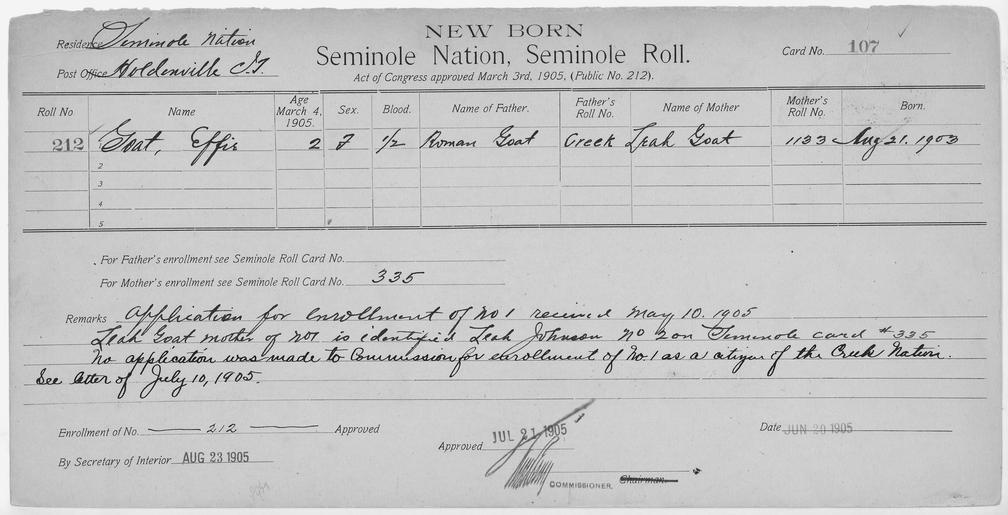 NEW BORN
Residence Seminole Nation
Seminole Nation, Seminole Roll.
Card No. 107
Post Office Holdenville I.T.
Act of Congress approved March 3rd, 1905, (Public No. 212).
Roll No Name Age March 4, 1905. Sex. Blood. Name of Father. Father's Roll No. Name of Mother Mother's Roll No. Born.
212 Goat, Effie 2 F 1/2 Roman Goat Creek Leah Goat 1133 Aug 21. 1903
2
3
4
5
For Father's enrollment see Seminole Roll Card No.
For Mother's enrollment see Seminole Roll Card No. 335
Remarks Application for enrollment of No 1 received May 10. 1905
Leah Goat mother of No 1 is identified Leah Johnson No 2 on Seminole card #335
No application was made to Commission for enrollment of No. 1 as a citizen of the Creek Nation.
See letter of July 10, 1905.
Enrollment of No. 212 Approved
Approved JUL 21 1905
Date JUN 20 1905
By Secretary of Interior AUG 23 1905
COMMISSIONER. Chairman.